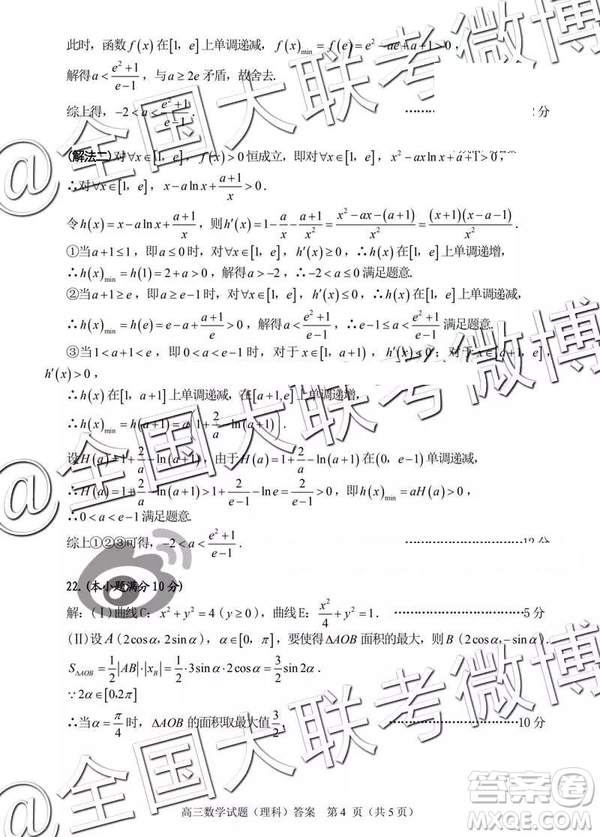 此时，函数 f(x) 在[1, e]上单调递减，f(x)min = f(e) = e² − ae + a + 1 > 0，
解得 a < (e²+1)/(e−1)，与 a ≥ 2e 矛盾，故舍去.
综上得，−2 < a < (e²+1)/(e−1). 2分
(解法二)对∀x∈[1, e]，f(x) > 0 恒成立，即对∀x∈[1, e]，x² − ax ln x + a + 1 > 0，
∴对∀x∈[1, e]，x − a ln x + (a+1)/x > 0.
令 h(x) = x − a ln x + (a+1)/x，则 h′(x) = 1 − a/x − (a+1)/x² = (x² − ax − (a+1))/x² = (x+1)(x−a−1)/x².
①当 a+1 ≤ 1，即 a ≤ 0 时，对∀x∈[1, e]，h′(x) ≥ 0，∴h(x) 在[1, e]上单调递增，
∴h(x)min = h(1) = 2 + a > 0，解得 a > −2，∴−2 < a ≤ 0 满足题意.
②当 a+1 ≥ e，即 a ≥ e−1 时，对∀x∈[1, e]，h′(x) ≤ 0，∴h(x) 在[1, e]上单调递减，
∴h(x)min = h(e) = e − a + (a+1)/e > 0，解得 a < (e²+1)/(e−1)，∴e−1 ≤ a < (e²+1)/(e−1) 满足题意.
③当 1 < a+1 < e，即 0 < a < e−1 时，对于 x∈[1, a+1)，h′(x) < 0；对于 x∈(a+1, e]，
h′(x) > 0，
∴h(x) 在[1, a+1]上单调递减，在[a+1, e]上单调递增，
∴h(x)min = h(a+1) = a[1 + 2/a − ln(a+1)].
设 H(a) = 1 + 2/a − ln(a+1)，由于 H(a) = 1 + 2/a − ln(a+1) 在(0, e−1)单调递减，
∴H(a) = 1 + 2/a − ln(a+1) > 1 + 2/(e−1) − ln e = 2/(e−1) > 0，即 h(x)min = aH(a) > 0，
∴0 < a < e−1 满足题意.
综上①②③可得，−2 < a < (e²+1)/(e−1). 12分
22. (本小题满分10分)
解：(Ⅰ)曲线C：x² + y² = 4 (y ≥ 0)，曲线E：x²/4 + y² = 1. ………………5分
(Ⅱ)设 A(2cosα, 2sinα)，α∈[0, π]，要使得 △AOB 面积的最大，则 B(2cosα, −sinα).
S△AOB = 1/2|AB|·|xB| = 1/2·3sinα·2cosα = 3/2 sin2α.
∵2α∈[0, 2π]
∴当 α = π/4 时，△AOB 的面积取最大值 3/2. ………………10分
高三数学试题（理科）答案 第 4 页（共 5 页）
@全国大联考微博
@全国大联考微博
@全国大联考微博
答案圈
MXQE.COM